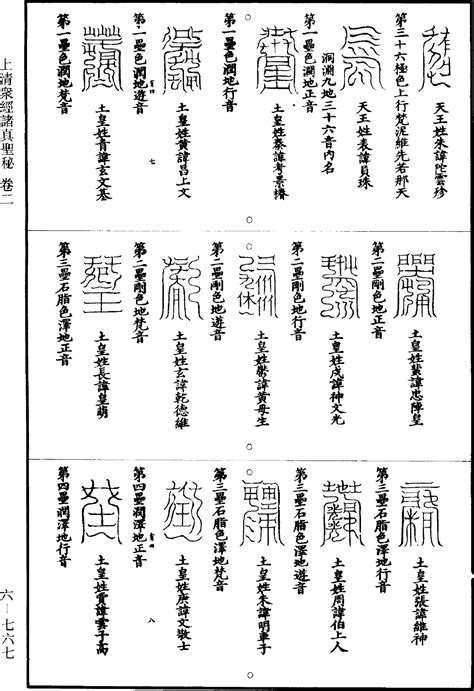 天王姓朱諱陀雲珍
第三十六極色上行梵泥維先若那天
天王姓表諱員珠
洞淵九地三十六音內名
第一壘色潤地正音
土皇姓秦諱考景
第一壘色潤地行音
土皇姓黃諱昌上文
第一壘色潤地遊音
土皇姓青諱玄文基
第一壘色潤地梵音
第二壘剛色地正音
土皇姓蜚諱忠陣皇
第二壘剛色地行音
土皇姓戊諱神文光
第二壘剛色地遊音
土皇姓鬱諱黃母生
第二壘剛色地梵音
土皇姓玄諱乾德維
第三壘石脂色澤地正音
土皇姓長諱皇萌
第三壘石脂色澤地行音
土皇姓張諱維神
第三壘石脂色澤地遊音
土皇姓周諱伯上人
第三壘石脂色澤地梵音
土皇姓朱諱明車子
第四壘潤澤地正音
土皇姓庚諱文敬士
第四壘潤澤地行音
土皇姓賈諱雲子高
七
八
上清衆經諸真聖秘 卷二
六—七六七